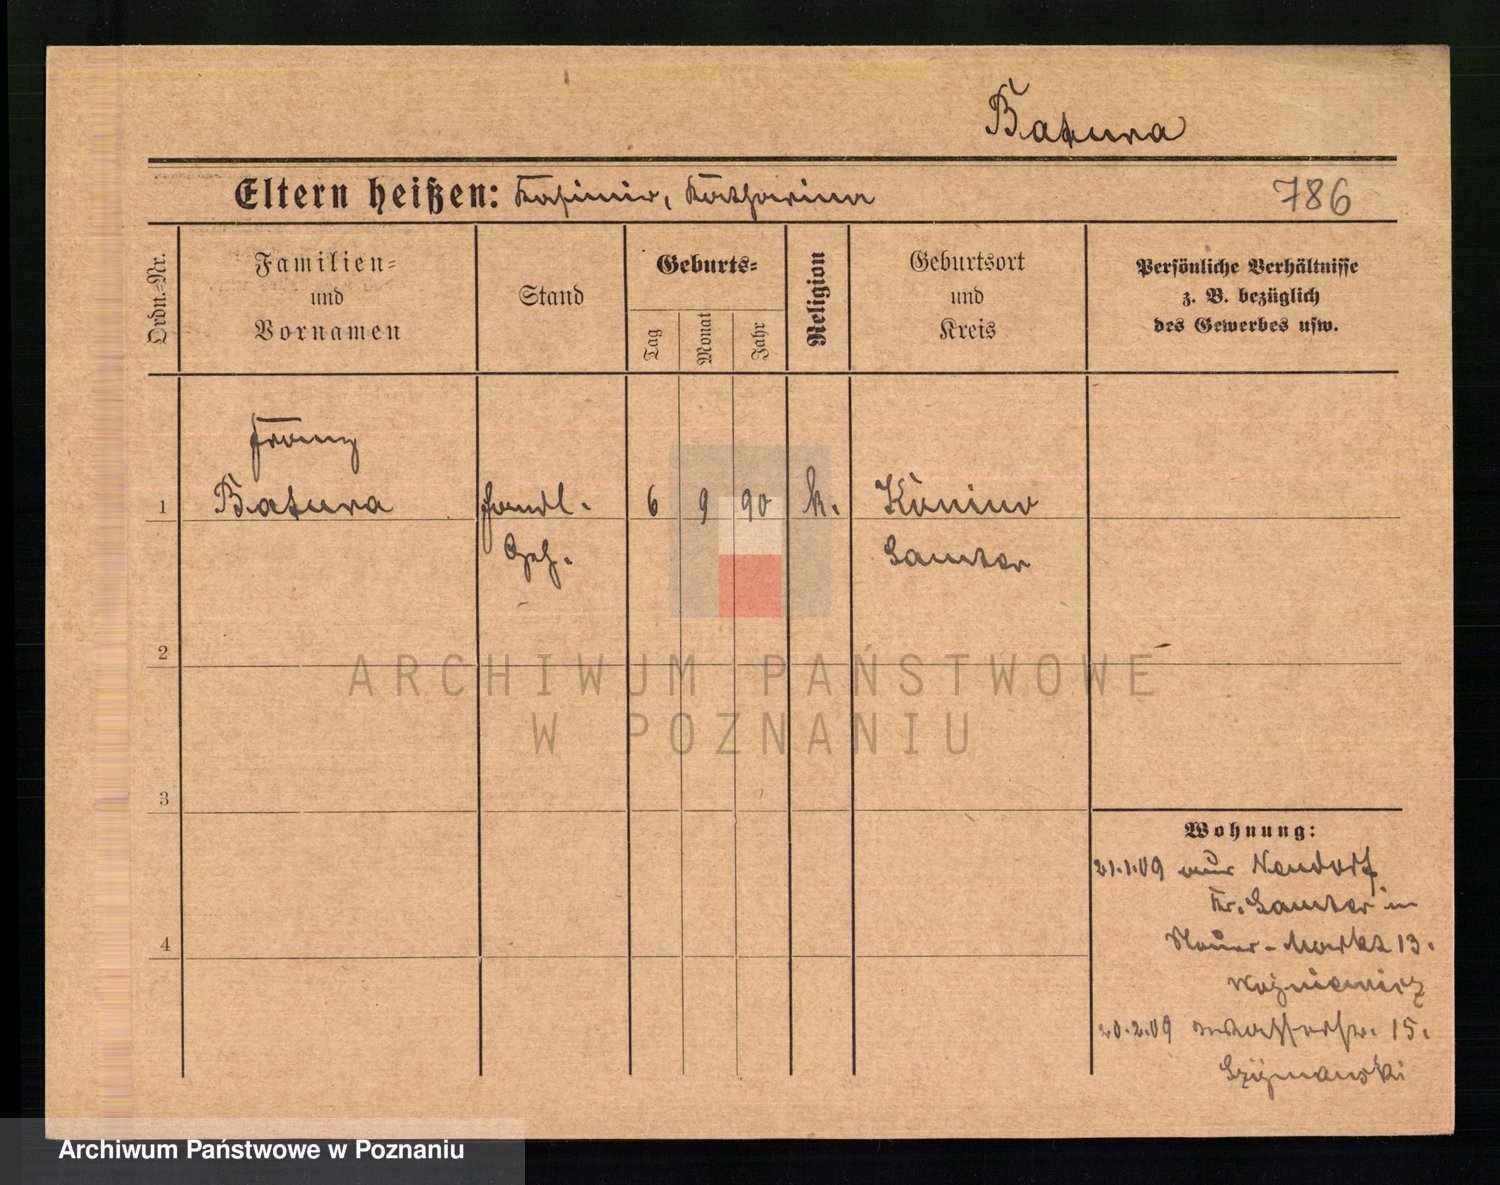 Batura
Eltern heißen: Kasimir, Katharina
786
Ordn.-Nr.
Familien-
und
Vornamen
Stand
Geburts-
Tag
Monat
Jahr
Religion
Geburtsort
und
Kreis
Persönliche Verhältnisse
z. B. bezüglich
des Gewerbes usw.
Franz
1 Batura Handl. 6 9 90 k. Konino
Geh. Samter
2
3
4
Wohnung:
21.1.09 aus Neudorf
Kr. Samter in
Neuer-Markt 13.
Woźniewicz
20.2.09 15.
Szymanski
ARCHIWUM PAŃSTWOWE
W POZNANIU
Archiwum Państwowe w Poznaniu